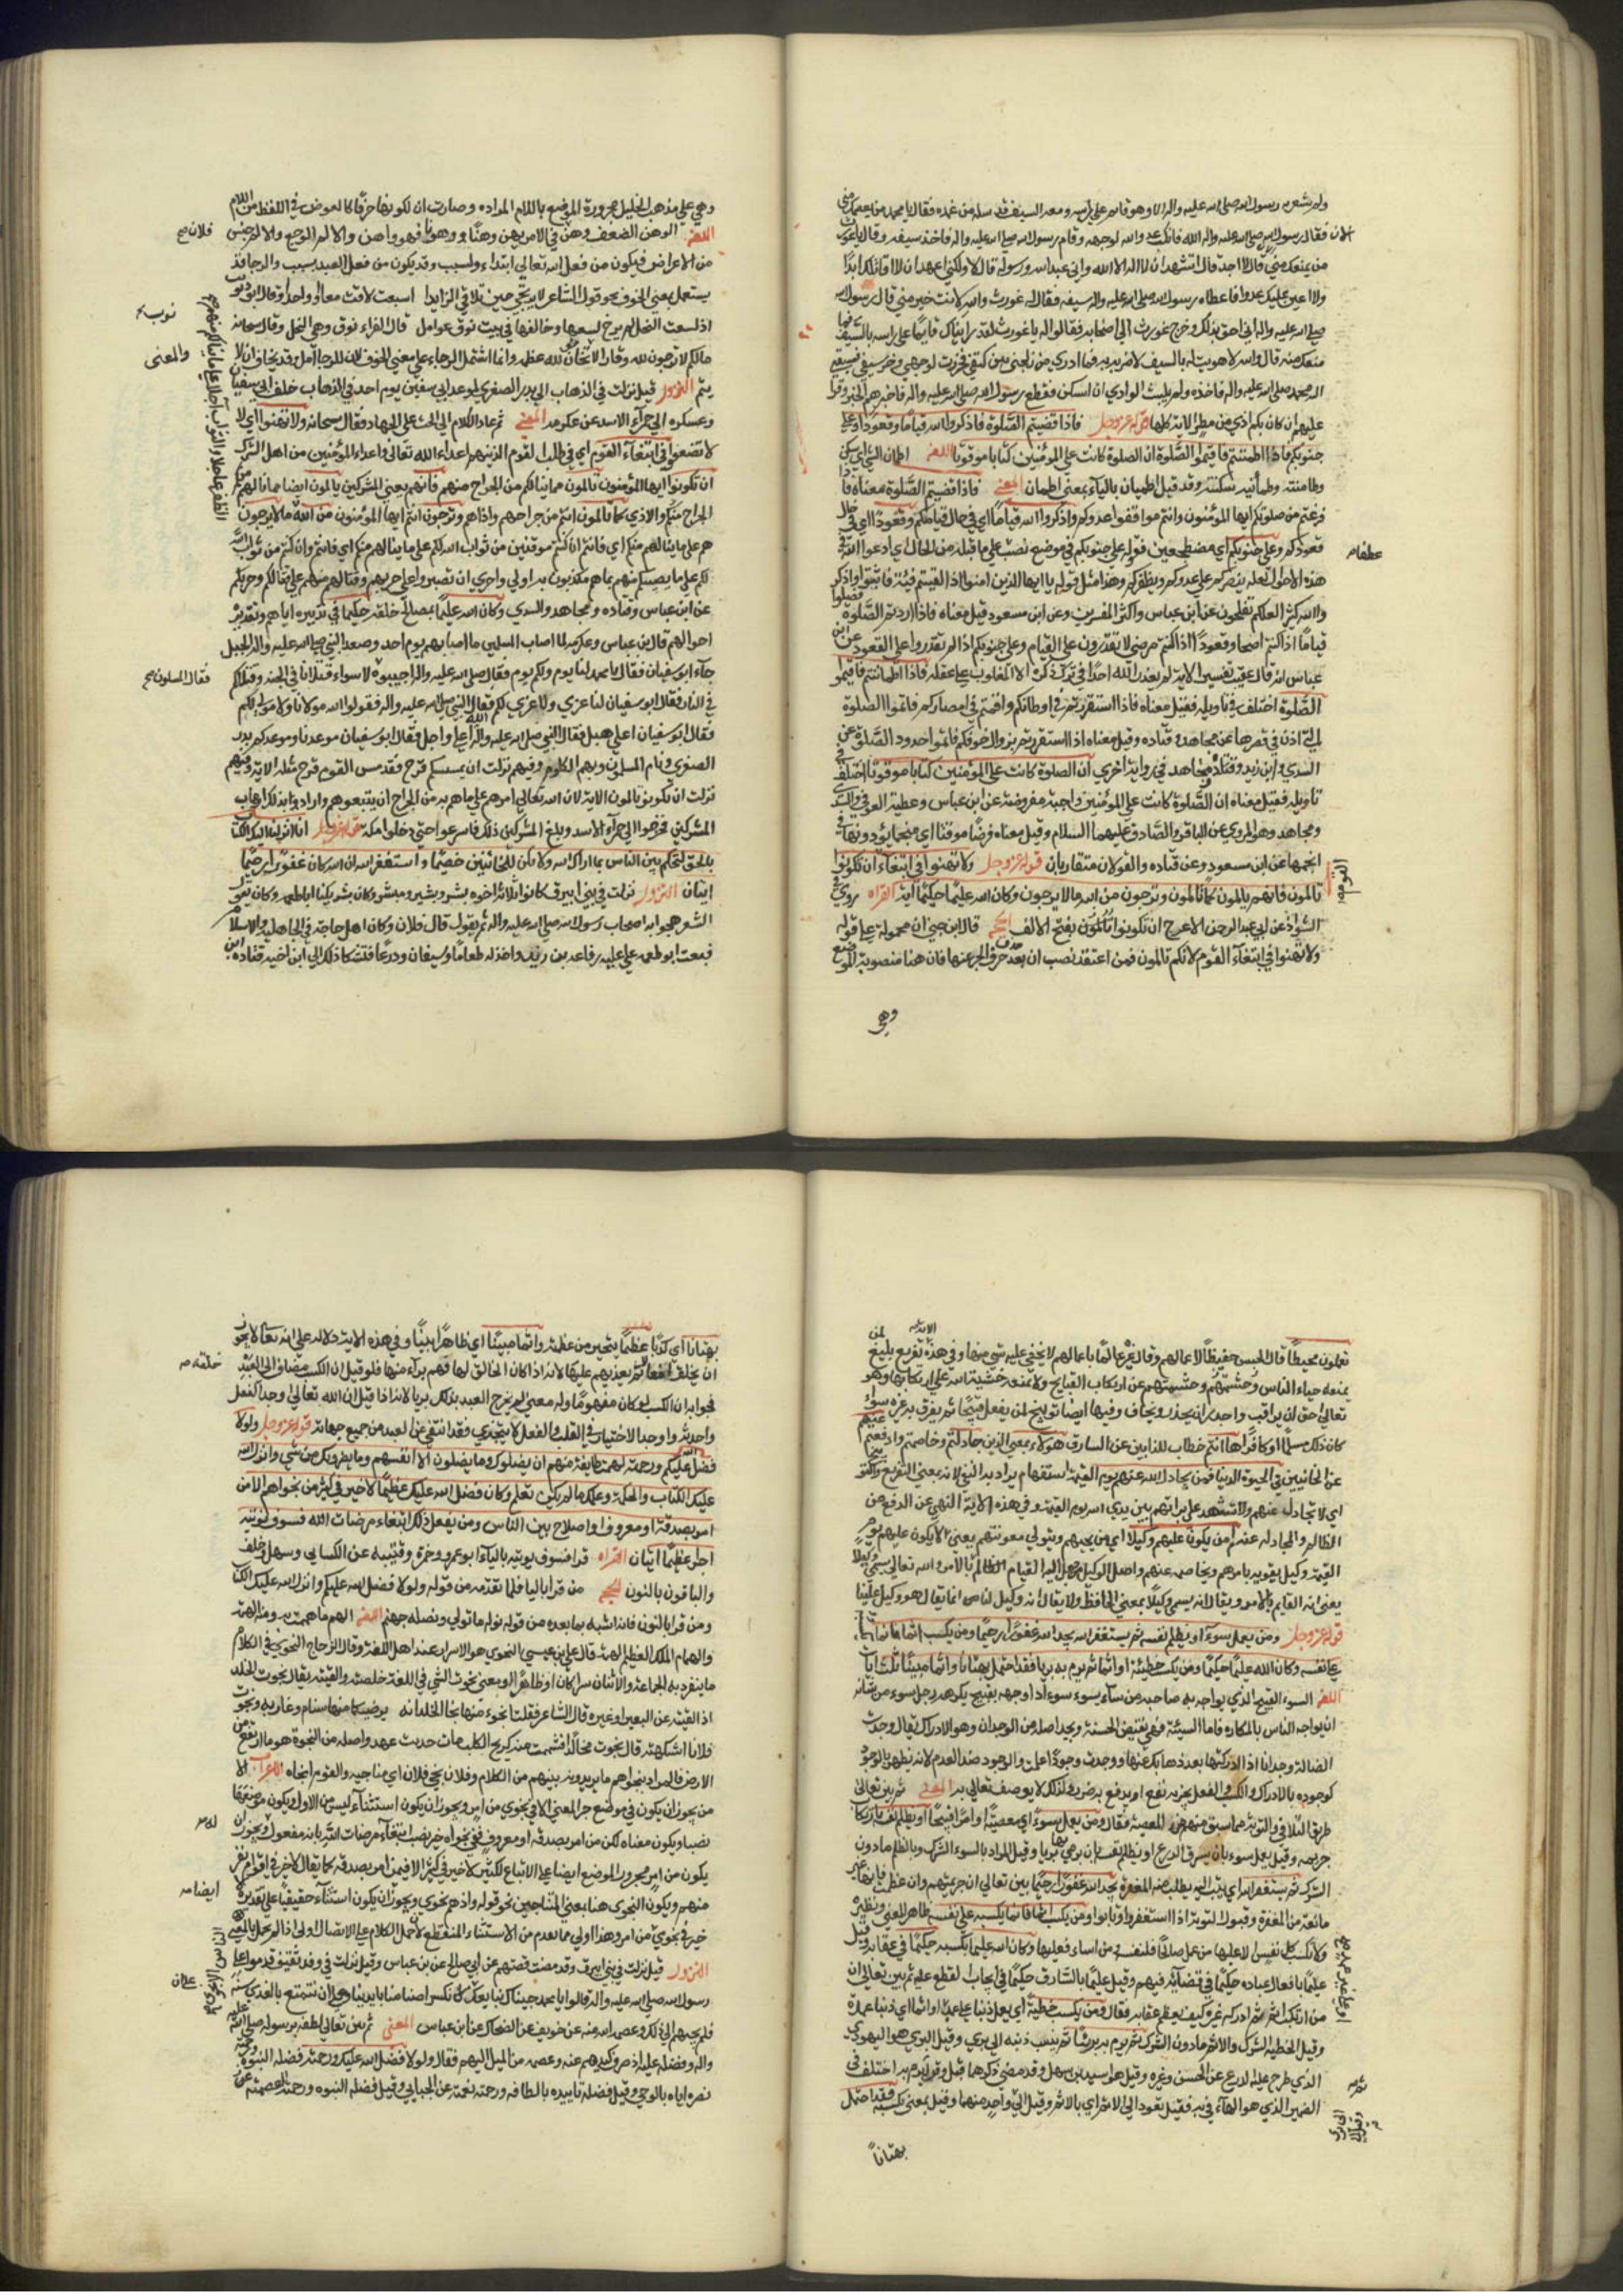 ولم يشعر به رسول الله صلى الله عليه واله الا وهو قائم على راسه ومعه السيف قد سله من غمده فقال يا محمد من يعصمك مني
الان فقال رسول الله صلى الله عليه واله الله فانكب عدو الله لوجهه وقام رسول الله صلى الله عليه واله فاخذ سيفه وقال يا غورث
من يمنعك مني قال لا احد قال اتشهد ان لا اله الا الله واني عبد الله ورسوله قال لا ولكني اعهد ان لا اقاتلك ابدا
ولا اعين عليك عدوا فاعطاه رسول الله صلى الله عليه واله سيفه فقال له غورث والله لانت خير مني قال رسول الله
صلى الله عليه واله اني احق بذلك وخرج غورث الى اصحابه فقالوا له يا غورث لقد رايناك قايما على راسه بالسيف فما
منعك منه قال والله لاهويت له بالسيف لاضربه به فما ادري من زلخني بين كتفي فخررت لوجهي وخر سيفي فسبقني
اليه محمد صلى الله عليه واله فاخذه ولم يلبث الوادي ان اسكن فقطع رسول الله صلى الله عليه واله فاخبرهم الخبر وقرا
عليهم ان كان بكم اذى من مطر الاية كلها قوله عز وجل فاذا قضيتم الصلوة فاذكروا الله قياما وقعودا وعلى
جنوبكم فاذا اطمئننتم فاقيموا الصلوة ان الصلوة كانت على المؤمنين كتابا موقوتا اللغه اطمان الشئ اي سكن
وطامنته وطمأنته سكنته وقد قيل اطبيان بالباء بمعنى اطمان المعنى فاذا قضيتم الصلوة معناه فاذا
فرغتم من صلوتكم ايها المؤمنون وانتم مواقفوا عدوكم فاذكروا الله قياما اي في حال قيامكم وقعودا اي في حال
قعودكم وعلى جنوبكم اي مضطجعين فقوله على جنوبكم في موضع نصب على ما قبله من الحال اي ادعوا الله في
هذه الاحوال لعله ينصركم على عدوكم ويظفركم وهذا مثل قوله يا ايها الذين امنوا اذا لقيتم فئة فاثبتوا واذكروا
الله كثيرا لعلكم تفلحون عن ابن عباس واكثر المفسرين وعن ابن مسعود قيل معناه فاذا اردتم الصلوة فصلوا
قياما اذا كنتم اصحا وقعودا اذا كنتم مرضى لا تقدرون على القيام وعلى جنوبكم اذا لم تقدروا على القعود عن ابن
عباس انه قال عقيب تفسير الاية لم يعذر الله احدا في ترك ذكره الا المغلوب على عقله فاذا اطمانتتم فاقيموا
الصلوة اختلف في تاويله فقيل معناه فاذا استقررتم في اوطانكم واقمتم في امصاركم فاتموا الصلوة
التي اذن في قصرها عن مجاهد وقتاده وقيل معناه اذا استقررتم بزوال خوفكم فاتموا حدود الصلوة عن
السدي وابن زيد وقتادة ومجاهد في رواية اخرى ان الصلوة كانت على المؤمنين كتابا موقوتا اختلف في
تاويله فقيل معناه ان الصلوة كانت على المؤمنين واجبة مفروضة عن ابن عباس وعطية العوفي والسدي
ومجاهد وهو المروي عن الباقر والصادق عليهما السلام وقيل معناه فرضا موقتا اي منجما يؤدونها في
انجمها عن ابن مسعود وعن قتاده والقولان متقاربان قوله عز وجل ولا تهنوا في ابتغاء ان تكونوا
تالمون فانهم يالمون كما تالمون وترجون من الله ما لا يرجون وكان الله عليما حكيما اية القراه روي في
الشواذ عن ابي عبد الرحمن الاعرج ان تكونوا تألمون بفتح الالف الحجه قال ابن جني ان محمولة على قوله
ولا تهنوا في ابتغاء القوم لانكم تالمون فمن اعتقد نصب ان بعد حذف حرف الجر عنها فان هنا منصوبة الموضع
وهي
وهي على مذهب الخليل مجرورة الموضع باللام المراده وصارت ان لكونها حرفا كالعوض في اللفظ من اللام
اللغه الوهن الضعف وهن في الامر يهن وهنا ووهونا فهو واهن والالم الوجع والالم جنس
من الاعراض فيكون من فعل الله تعالى ابتداء ولسبب وقد يكون من فعل العبد بسبب والرجا قد
يستعمل بمعنى الخوف نحو قول الشاعر لا يرتجي حين يلاقي الزايدا اسبعت لاقت معا او واحدا وقال ابو ذويب
اذا لسعت النحل لم يرج لسعها وخالفها في بيت نوق عوامل قال الفراء نوق وهي النحل وقال سبحانه
مالكم لا ترجون لله وقارا لا تخافون لله عظمه وانما اشتمل الرجاء على معنى الخوف لان للرجا امل وقد يخاف ان لا
يتم النزول قيل نزلت في الذهاب الى بدر الصغرى لموعد ابي سفين يوم احد في الذهاب خلف ابي سفيان
وعسكره الى حمرآء الاسد عن عكرمه المعنى ثم عاد الكلام الى الحث على الجهاد فقال سبحانه ولا تهنوا اي لا
لا تضعفوا في ابتغاء القوم اي في طلب القوم الذين هم اعداء الله تعالى واعداء المؤمنين من اهل الشرك
ان تكونوا ايها المؤمنون تالمون مما ينالكم من الجراح منهم فانهم يعني المشركين يالمون ايضا مما ينالهم من
الجراح منكم والاذى كما تالمون انتم من جراحهم واذاهم وترجون انتم ايها المؤمنون من الله ما لا يرجون
هم على ما ينالهم منكم اي فانتم ان كنتم موقنين من ثواب الله لكم على ما ينالهم منكم اي فانتم وان كنتم من ثواب الله
لكم على ما يصيبكم منهم بما هم مكذبون به اولى واحرى ان تصبروا على حربهم وقتالهم منهم على قتالكم وحربكم
عن ابن عباس وقتاده ومجاهد والسدي وكان الله عليما بمصالح خلقه حكيما في تدبيره اياهم وتقديره
احوالهم قال ابن عباس وعكرمه لما اصاب المسلمين ما اصابهم يوم احد وصعد النبي صلى الله عليه واله الجبل
جاء ابو سفيان فقال يا محمد لنا يوم ولكم يوم فقال صلى الله عليه واله اجيبوه لا سواء قتلانا في الجنه وقتلاكم
في النار فقال ابو سفيان لنا عزى ولا عزى لكم فقال النبي صلى الله عليه واله فقولوا الله مولانا ولا مولى لكم
فقال ابو سفيان اعل هبل فقال النبي صلى الله عليه واله الله اعلى واجل فقال ابو سفيان موعدنا وموعدكم بدر
الصغرى ونام المسلمون وبهم الكلوم وفيهم نزلت ان يمسسكم قرح فقد مس القوم قرح مثله الاية وفيهم
نزلت ان تكونوا تالمون الاية لان الله تعالى امرهم على ما هم به من الجراح ان يتبعوهم واراد بذلك ارهاب
المشركين فخرجوا الى حمرآء الاسد وبلغ المشركين ذلك فاسرعوا حتى دخلوا مكة قوله عز وجل انا انزلنا اليك الكتاب
بالحق لتحكم بين الناس بما اراك الله ولا تكن للخائنين خصيما واستغفر الله ان الله كان غفورا رحيما
ايتان النزول نزلت في بني ابيرق كانوا ثلاثة اخوه بشر وبشير ومبشر وكان بشير يكنا ابا طعمه وكان يقول
الشعر يهجو به اصحاب رسول الله صلى الله عليه واله ثم يقول قال فلان وكان اهل حاجة في الجاهلية والاسلام
فنقب ابو طعمه على علية رفاعه بن زيد واخذ له طعاما وسيفان ودرعا فشكا ذلك الى ابن اخيه قتاده ابن
فلان صح
والمعنى
فقال المسلمون صح
يعملون محيطا قال الحسن حفيظا لاعمالهم وقال غيره عالما باعمالهم لا يخفى عليه شئ منها وفي هذه الاية تقريع بليغ لمن
يمنعه حياء الناس وحشمتهم عن ارتكاب القبايح ولا يمنعه خشية الله على ارتكابها وهو
تعالى احق ان يراقب واجدر ان يحذر ويخاف وفيها ايضا توبيخ لمن يفعل قبيحا ثم يقرف به غيره سواء
كان ذلك مسلما او كافرا ها انتم خطاب للذابين عن السارق هؤلاء بمعنى الذين جادلتم وخاصمتم ودافعتم عنهم
عن الخائنين في الحيوة الدنيا فمن يجادل الله عنهم يوم القيمة استفهام يراد به النفي لانه بمعنى التقريع والتوبيخ
اي لا مجادل عنهم ولا شاهد على براءتهم بين يدي الله يوم القيمة وفي هذه الاية النهي عن الدفع عن
الظالم والمجادله عنه ام من يكون عليهم وكيلا اي من يحميهم ويتولى معونتهم يعني لا يكون عليهم يوم
القيمة وكيل يقوم بامرهم ويخاصم عنهم واصل الوكيل من جعل اليه القيام بالامر والله تعالى يسمى وكيلا
يعني انه القايم بالامور ويقال انه يسمى وكيلا بمعنى الحافظ ولا يقال انه وكيل لنا من انما يقال هو وكيل علينا
قوله عز وجل ومن يعمل سوءا او يظلم نفسه ثم يستغفر الله يجد الله غفورا رحيما ومن يكسب اثما فانما يكسبه
على نفسه وكان الله عليما حكيما ومن يكسب خطيئة او اثما ثم يرم به بريا فقد احتمل بهتانا واثما مبينا ثلث ايات
اللغه السوء القبيح الذي يواجه به صاحبه من ساءه يسوءه سوءا اذا واجهه بقبيح يكرهه ورجل سوء من شانه
ان يواجه الناس بالمكاره فاما السيئة فهي نقيض الحسنة ويجد اصله من الوجدان وهو الادراك يقال وجدت
الضالة وجدانا اذا ادركتها بعد ذهابك عنها ووجدت وجودا علمت والوجود ضد العدم لانه يظهر بالوجود
كوجوده بالادراك والكسب الفعل يجر به نفع او يدفع به ضرر ولذلك لا يوصف تعالى به المعنى ثم بين تعالى
طريق التلافي والتوبة مما سبق منهم من المعصية فقال ومن يعمل سوءا اي معصية او امرا قبيحا او يظلم نفسه بارتكاب
جريمه وقيل يعمل سوءا بان يسرق الدرع او يظلم نفسه بان يرمي بها بريا وقيل المراد بالسوء الشرك وبالظلم ما دون
الشرك ثم يستغفر الله اي يتوب اليه يطلب منه المغفرة يجد الله غفورا رحيما بين تعالى ان جريمتهم وان عظمت فانها غير
مانعة من المغفرة وقبول التوبة اذا استغفروا وتابوا ومن يكسب اثما فانما يكسبه على نفسه ظاهر المعنى ونظيره
ولا تكسب كل نفس الا عليها من عمل صالحا فلنفسه ومن اساء فعليها وكان الله عليما بكسبه حكيما في عقابه وقيل
عليما بافعال عباده حكيما في قضائه فيهم وقيل عليما بالسارق حكيما في ايجاب القطع عليه ثم بين تعالى ان
من ارتكب اثما ثم قذف به غيره كيف يعظم عقابه فقال ومن يكسب خطيئة اي يعمل ذنبا على عمد او اثما اي ذنبا عمده
وقيل الخطية الشرك والاثم ما دون الشرك ثم يرم به بريئا ثم ينسب ذنبه الى بري وقيل البري هو اليهودي
الذي طرح عليه الدرع عن الحسن وغيره وقيل هو لبيد بن سهل وقد مضى ذكرهما قبل وقوله يرم به اختلف في
الضمير الذي هو الهآء في به فقيل يعود الى الاثم اي بالاثم وقيل الى واحد منهما وقيل بمعنى يكسبه فقد احتمل
بهتانا
بهتانا اي كذبا عظيما يتحير من عظمه واثما مبينا اي ظاهرا بينا وفي هذه الاية دلالة على انه تعالى لا يجوز
ان يخلق افعالهم ثم يعذبهم عليها لانه اذا كان الخالق لها فهم براء منها فلو قيل ان الكسب مضاف الى العبد
فجوابه ان الكسب لو كان مفهوما وله معنى لم يخرج العبد بذلك بريا لانه اذا قيل ان الله تعالى اوجد الفعل
واحدثه واوجد الاختيار في القلب والفعل لا يتجزى فقد انتفى عن العبد من جميع جهاته قوله عز وجل ولولا
فضل الله عليكم ورحمته لهمت طايفة منهم ان يضلوك وما يضلون الا انفسهم وما يضرونك من شئ وانزل الله
عليك الكتاب والحكمة وعلمك ما لم تكن تعلم وكان فضل الله عليك عظيما لا خير في كثير من نجواهم الا من
امر بصدقة او معروف او اصلاح بين الناس ومن يفعل ذلك ابتغاء مرضات الله فسوف نؤتيه
اجرا عظيما ايتان القراه قرا فسوف يوتيه بالياء ابو عمرو وحمزة وقتيبه عن الكسائي وسهل وخلف
والباقون بالنون الحجه من قرا باليا فلما تقدمه من قوله ولولا فضل الله عليكم وانزل الله عليك الكتاب
ومن قرا بالنون فلانه اشبه بما بعده من قوله نوله ما تولى ونصله جهنم اللغه الهم ما هممت به ومنه الهمة
والهمام الملك العظيم الهمة قال علي بن عيسى النحوي هو الاسرار عند اهل اللغة وقال الزجاج النجوى في الكلام
ما ينفرد به الجماعة والاثنان سرا كان او ظاهرا ومعنى نجوت الشئ في اللغة خلصته والقيته يقال نجوت الجلد
اذا القيته عن البعير او غيره قال الشاعر فقلت انجوا عنها نجا الجلد انه يرضيكما منها سنام وغاربه ونجوت
فلانا اذا استنكهته قال نجوت مجالدا فشممت منه كريح الكلب مات حديث عهد واصله من النجوة هو ما ارتفع من
الارض فالمراد بنجواهم ما يديرونه بينهم من الكلام وفلان نجي فلان اي مناجيه والقوم انجاه الاعراب الا
من يجوز ان يكون في موضع جر المعنى الا في نجوى من امر ويجوز ان يكون استثناء ليس من الاول ويكون موضعها
نصبا ويكون معناه لكن من امر بصدقه او معروف ففي نجواه خير نصب ابتغاء مرضات الله بانه مفعول له ويجوز ان
يكون من امر مجرور الموضع ايضا على الاتباع لكثير كانه لا خير في كثير الا فيمن امر بصدقه كما يقال لا خير في القوم الا نفر
منهم ويكون النجوى هنا بمعنى المتناجين نحو قوله واذ هم نجوى ويجوز ان يكون استثناء حقيقيا على تقدير لا
خير في نجوى من امر وهذا اولى مما تقدم من الاستثناء المنقطع لان حمل الكلام على الاتصال اولى اذا لم يخل بالمعنى
النزول قيل نزلت في بني ابيرق وقد مضت قصتهم عن ابي صالح عن ابن عباس وقيل نزلت في وفد ثقيف قدموا على
رسول الله صلى الله عليه واله فقالوا يا محمد جئناك نبايعك على ان لا نكسر اصنامنا بايدينا وعلى ان نتمتع بالعزى سنة
فلم يجبهم الى ذلك وعصمه الله منه عن جويبر عن الضحاك عن ابن عباس المعنى ثم بين تعالى لطفه برسوله صلى الله عليه
واله وفضله عليه اذ صرف كيدهم عنه وعصمه من الميل اليهم فقال ولولا فضل الله عليك ورحمته فضله النبوة
نصره اياه بالوحي وقيل فضله تاييده بالطافه ورحمته نعمته عن الجبايي وقيل فضله النبوه ورحمته العصمة